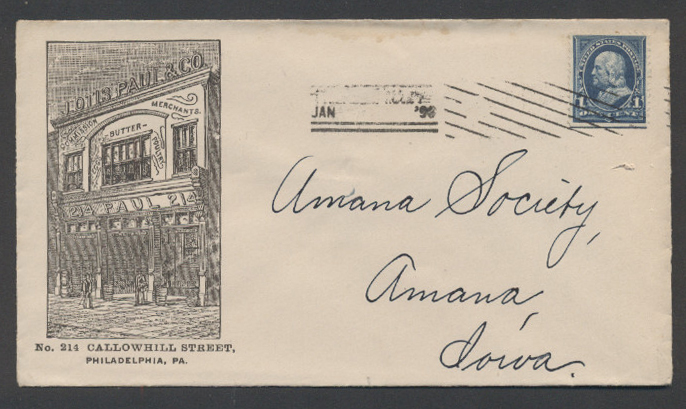 LOUIS PAUL & CO.
COMMISSION MERCHANTS.
BUTTER POULTRY
214 PAUL 214
No. 214 CALLOWHILL STREET,
PHILADELPHIA, PA.
JAN '98
UNITED STATES POSTAGE
1 1
ONE CENT
Amana Society,
Amana,
Iowa.